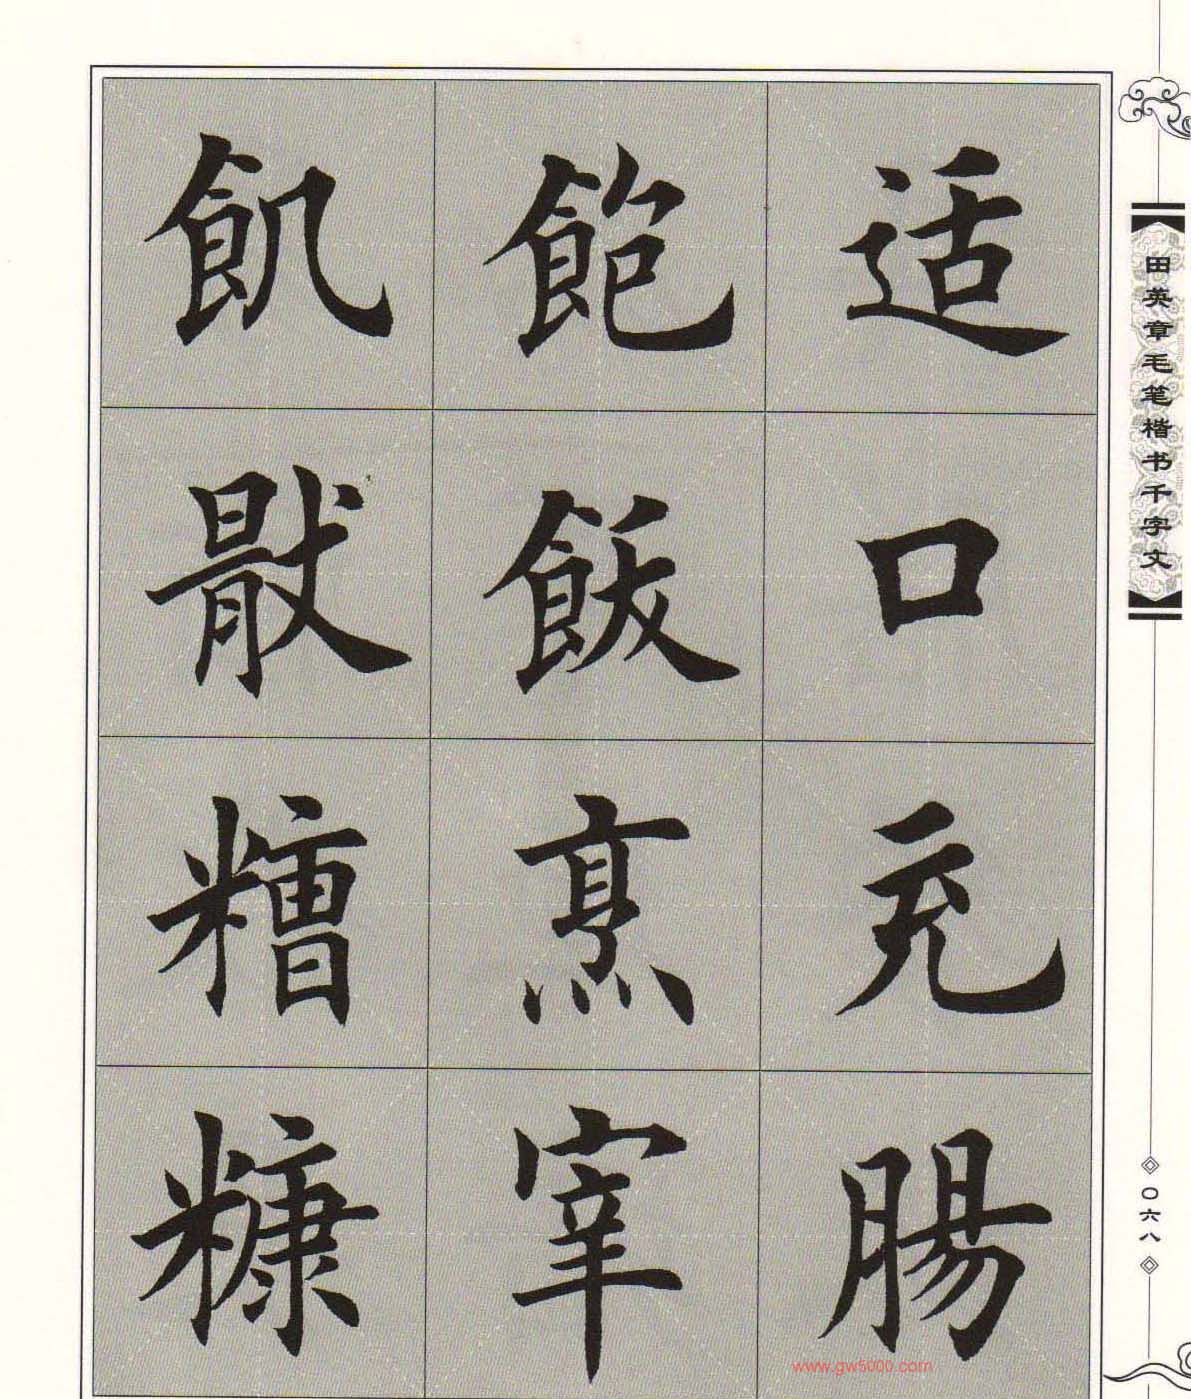 适口充腸
飽飯烹宰
飢猒糟糠
田英章毛笔楷书千字文
〇六八
www.gw5000.com